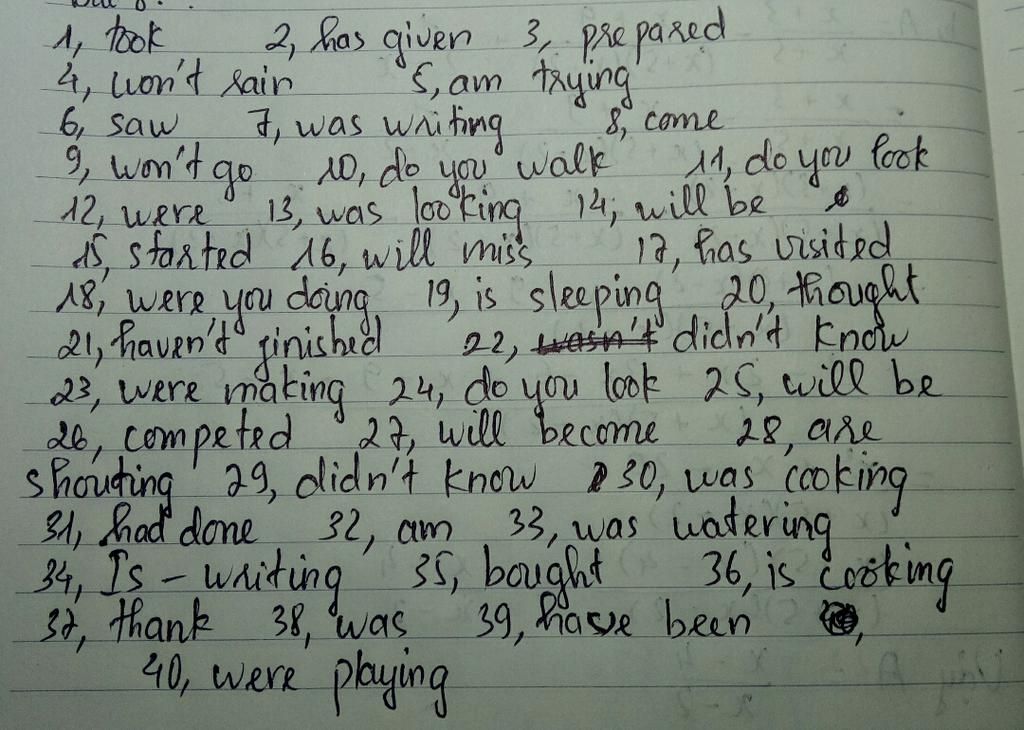 1, took 2, has given 3, prepared
4, won't rain 5, am trying
6, saw 7, was writing 8, come
9, won't go 10, do you walk 11, do you look
12, were 13, was looking 14, will be
15, started 16, will miss 17, has visited
18, were you doing 19, is sleeping 20, thought
21, haven't finished 22, wasn't didn't know
23, were making 24, do you look 25, will be
26, competed 27, will become 28, are
shouting 29, didn't know 30, was cooking
31, had done 32, am 33, was watering
34, Is - writing 35, bought 36, is cooking
37, thank 38, was 39, have been
40, were playing